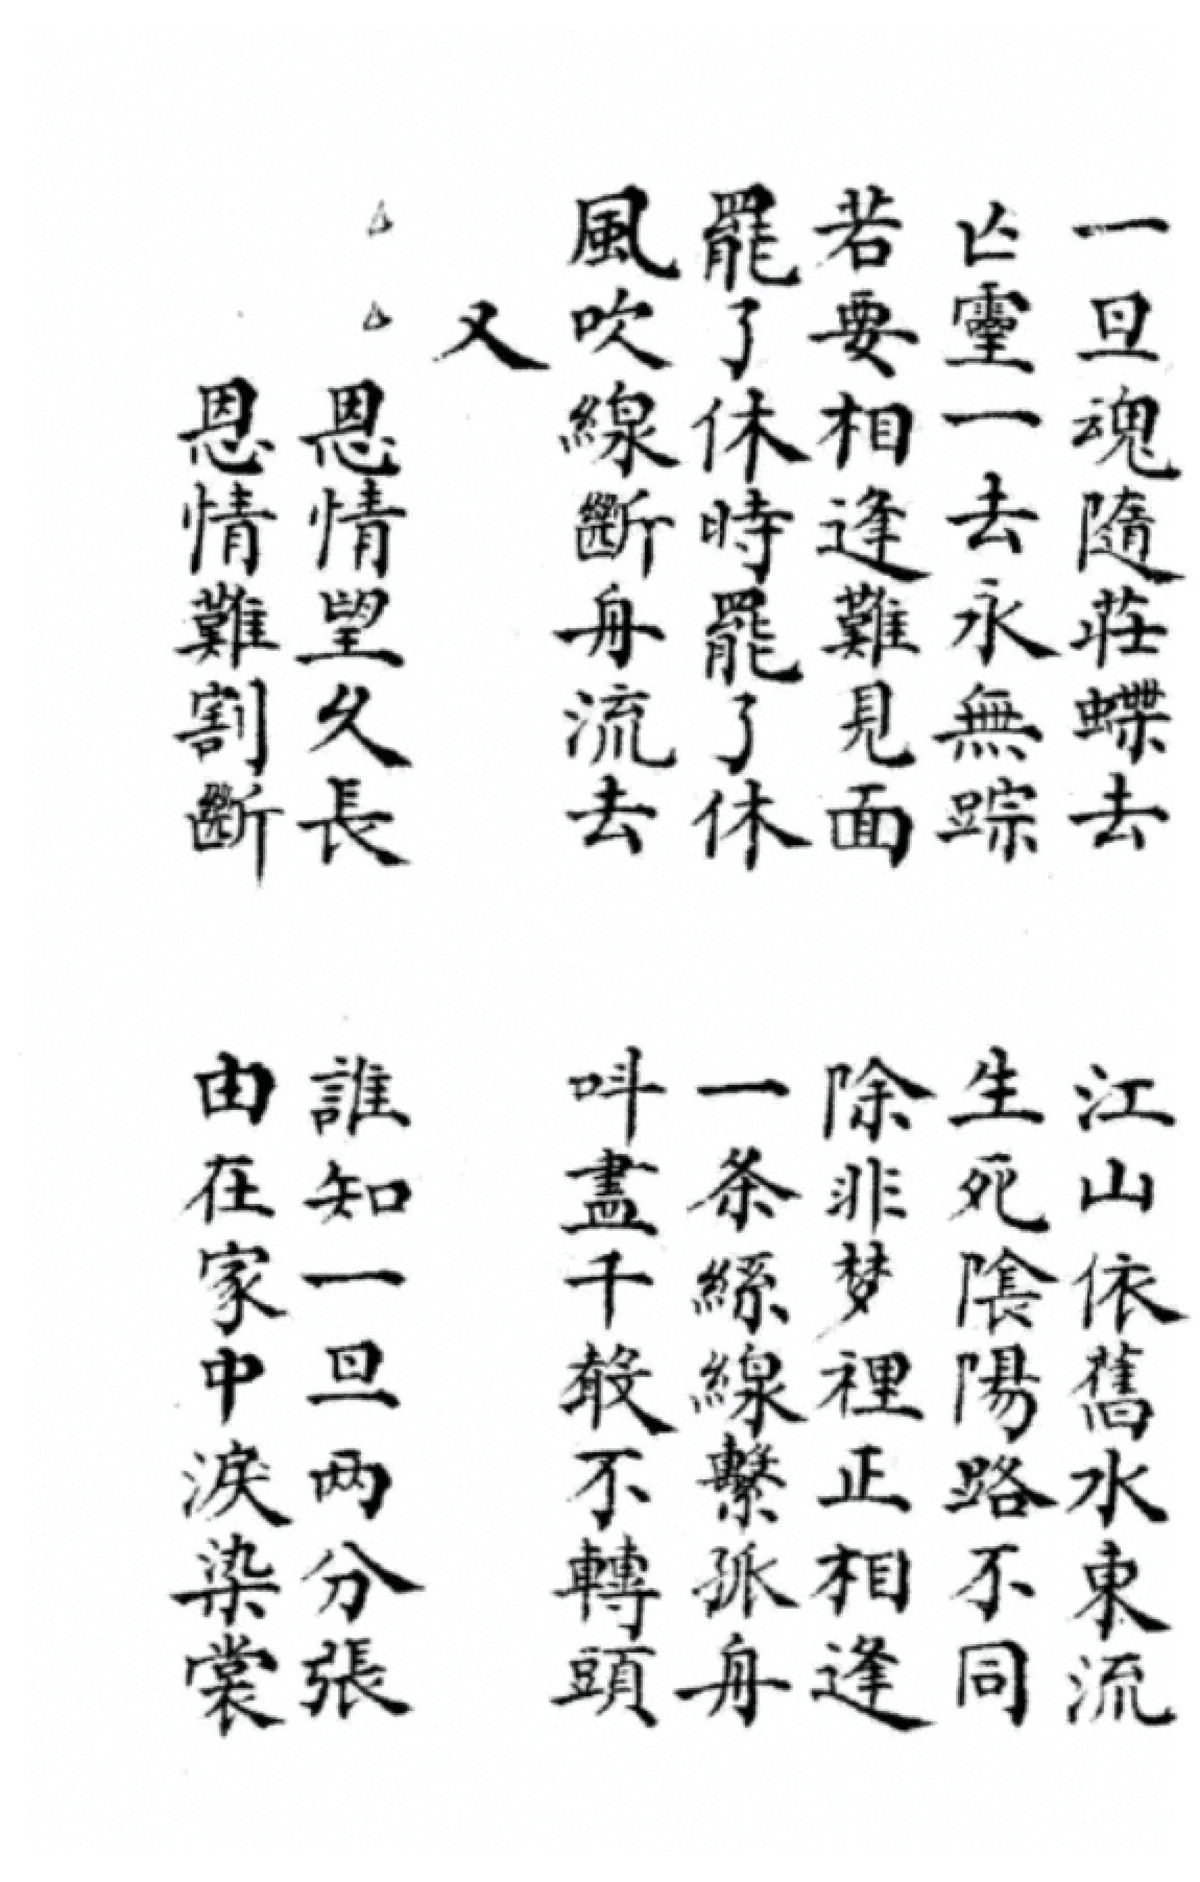 一旦魂隨莊蝶去 江山依舊水東流
亡靈一去永無踪 生死陰陽路不同
若要相逢難見面 除非梦裡正相逢
罷了休時罷了休 一条絲線繫孤舟
風吹線斷舟流去 呌盡千聲不轉頭
又
恩情望久長 誰知一旦両分張
恩情難割斷 由在家中淚染裳